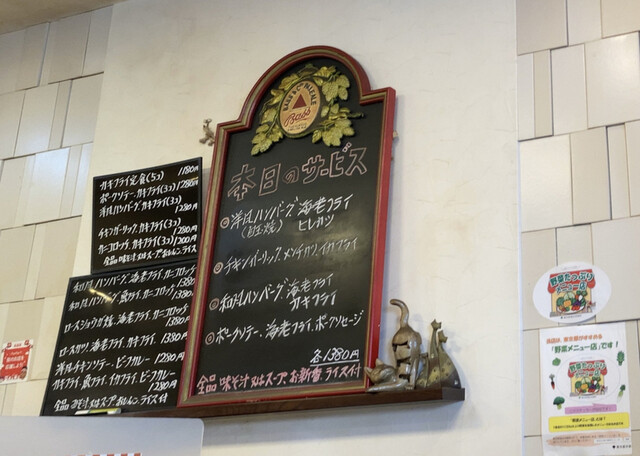 カキフライ定食(5コ) 1180円
ポークソテー、カキフライ(3コ) 1280円
洋風ハンバーグ、カキフライ(3コ) 1280円
チキンガーリック、カキフライ(3コ) 1280円
カニコロッケ、カキフライ(3コ) 1200円
全品 味そ汁又はスープ、お新香、ライス
和風ハンバーグ、海老フライ、カニコロッケ 1380
ロースショウガ焼、海老フライ、カニコロッケ 1380円
ロースカツ、海老フライ、カキフライ 1380円
洋風チキンソテー、ビーフカレー 1280円
カキフライ、魚フライ、イカフライ、ビーフカレー 1280円
全品 みそ汁又はスープ、お新香、ライス付
BASS & Co's PALE ALE
Bass
本日のサービス
①洋風ハンバーグ、海老フライ
(目玉焼) ヒレカツ
②チキンガーリック、メンチカツ、イカフライ
③和風ハンバーグ、海老フライ
カキフライ
④ポークソテー、海老フライ、ポークソセージ
各1380円
全品 味そ汁又はスープ、お新香、ライス付
野菜たっぷり
メニュー店
当店は、東京都がすすめる
「野菜メニュー店」です!
野菜たっぷり
メニュー店